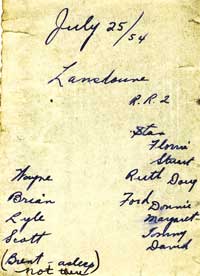 July 25/54
Lansdowne
R.R.2
Stan
Florrie
Stuart
Wayne Ruth Doug
Brian Ford Donnie
Lyle Margaret
Scott Tommy
(Brent - asleep David
not there)